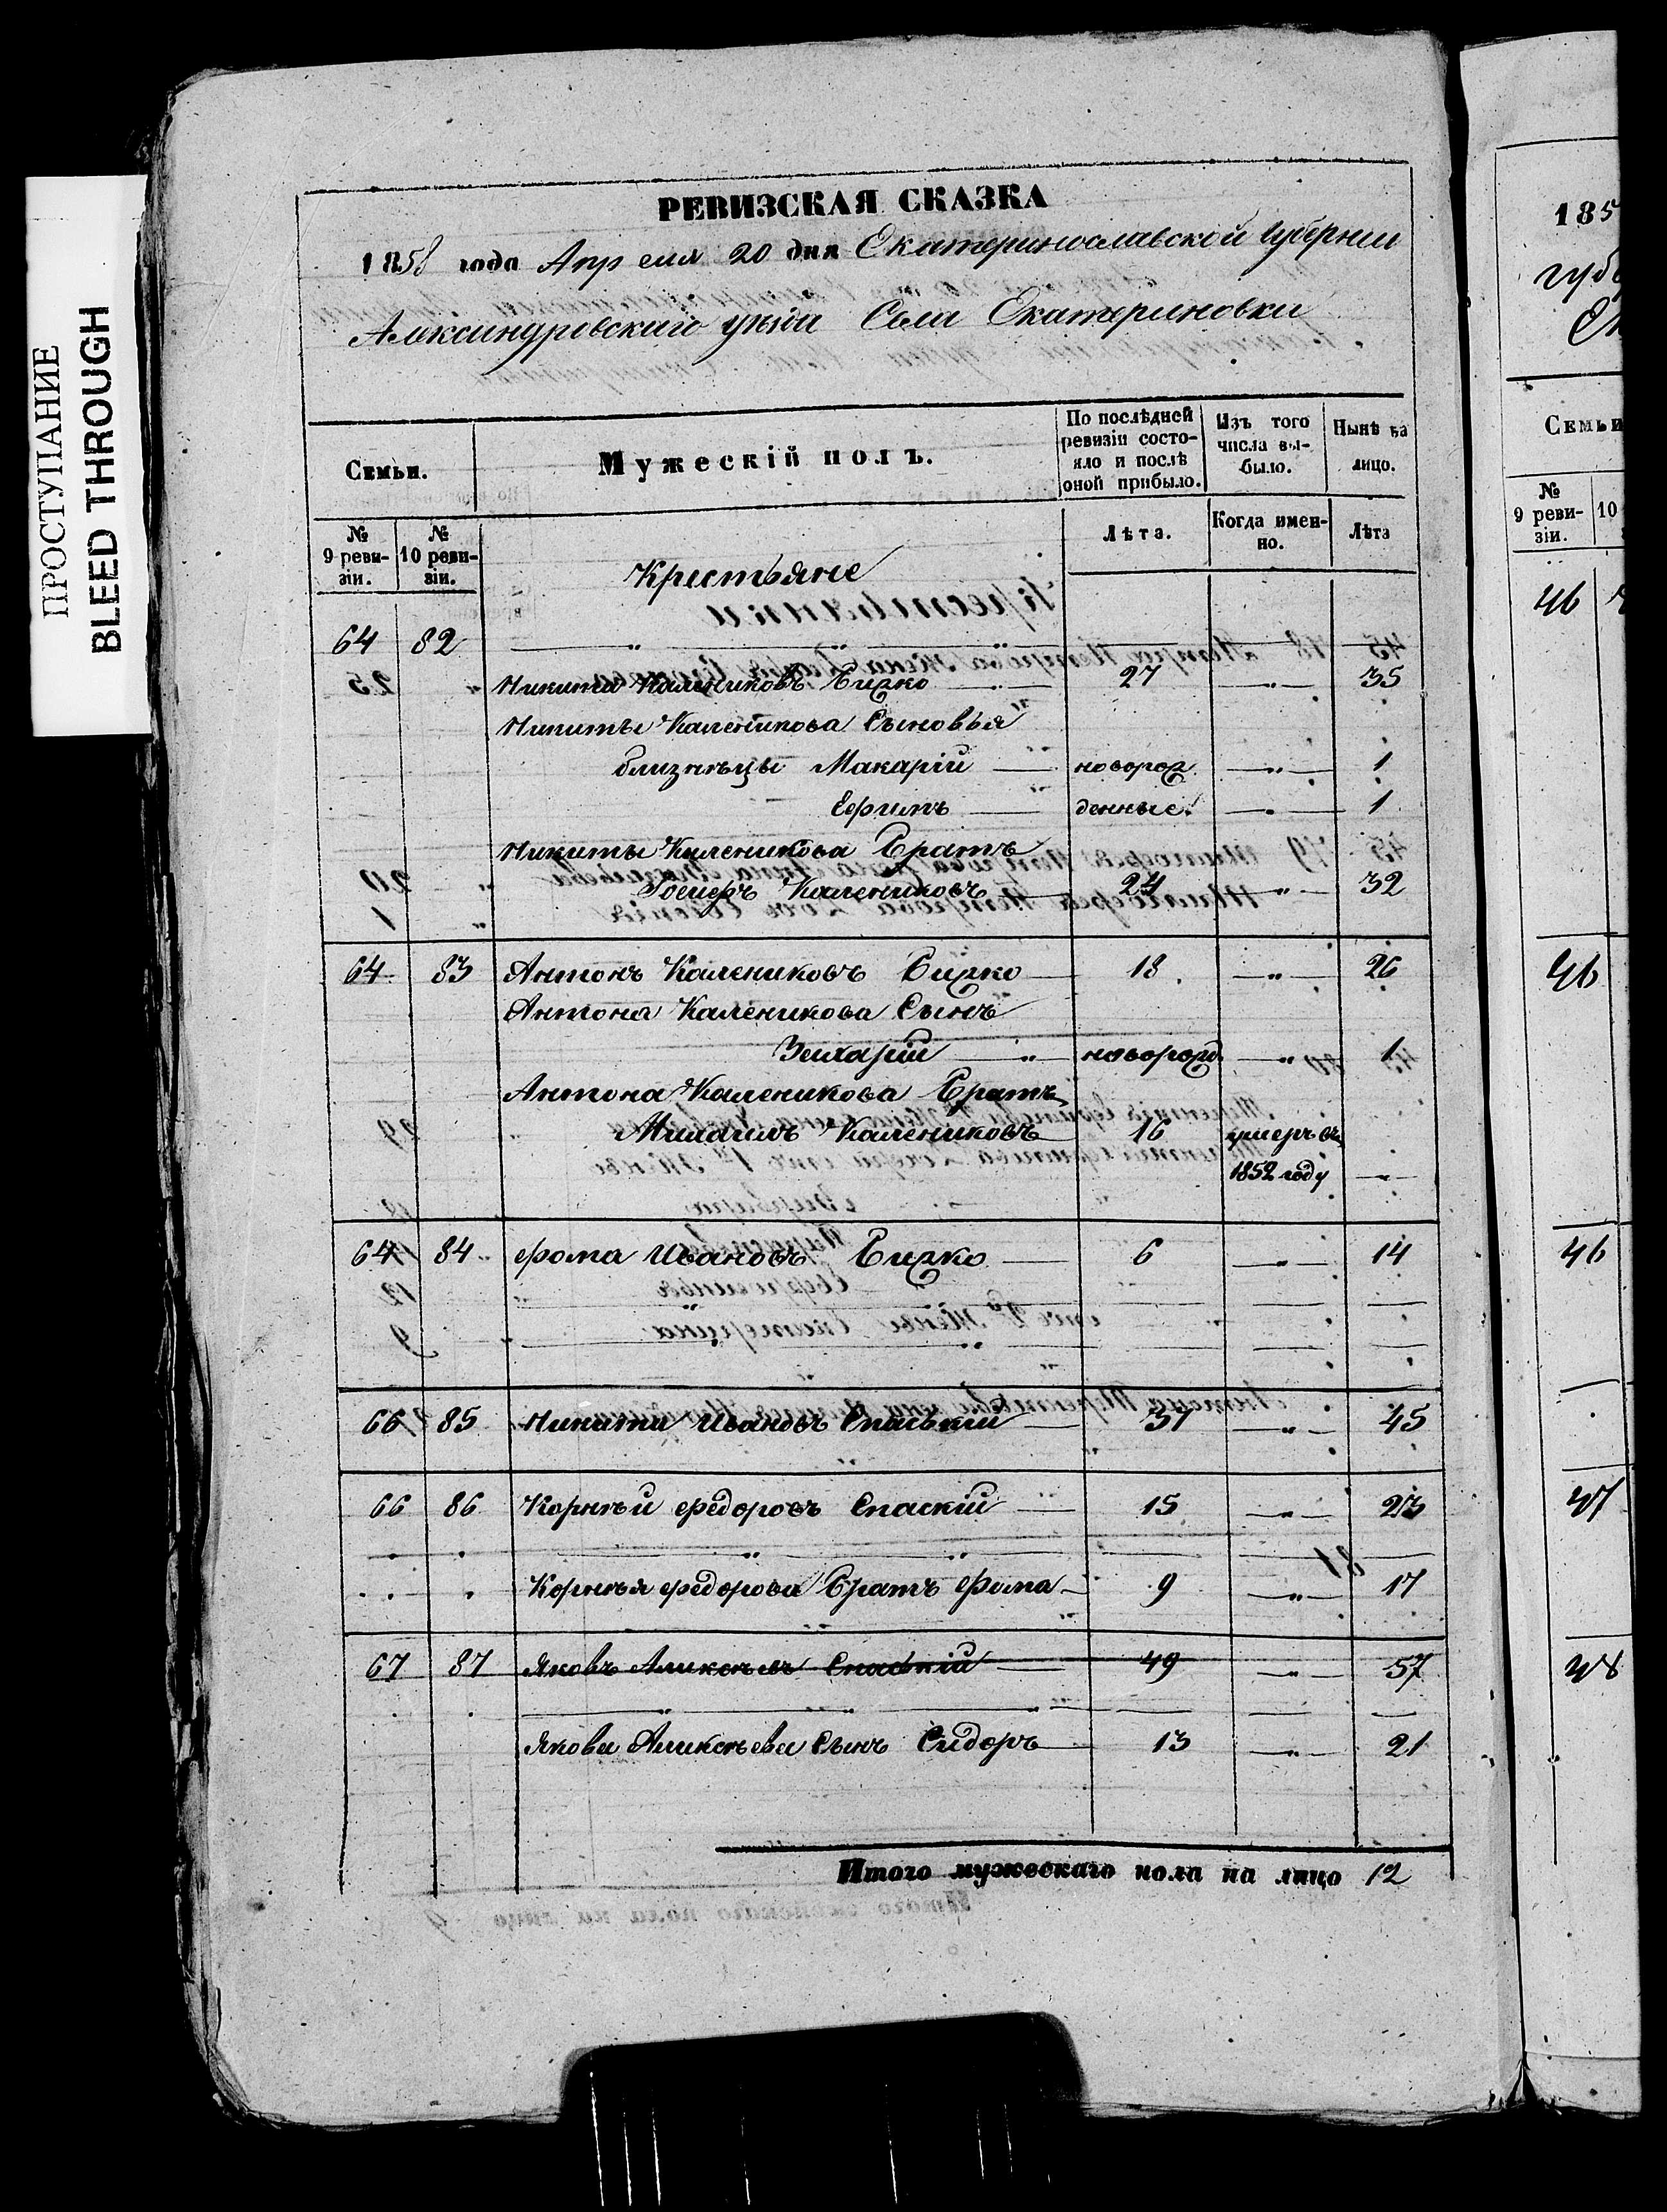 ПРОСТУПАНИЕ
BLEED THROUGH
РЕВИЗСКАЯ СКАЗКА
1858 года Апреля 20 дня Екатеринославской Губернии
Александровскаго уѣзда Села Екатериновки
Семьи.
Мужескій полъ.
По послѣдней ревизіи состояло и послѣ оной прибыло.
Изъ того числа выбыло.
Нынѣ на лицо.
№ 9 ревизіи.
№ 10 ревизіи.
Лѣта.
Когда именно.
Лѣта
Крестьяне
64 82
Никита Калениковъ 27 " 35
Никиты Каленикова Сыновья
близнецы Макарій новорож " 1
Ефимъ денные. " 1
Никиты Каленикова Братъ
Калениковъ 24 " 32
64 83 Антонъ Калениковъ 18 " 26
Антона Каленикова Сынъ
Захарій " новорожд " 1
Антона Каленикова Братъ
Калениковъ 16 умеръ въ
1852 году
64 84 Фома Ивановъ 6 " 14
66 85 Никита Ивановъ Спаскій " 45
66 86 Корнѣй Федоровъ Спаскій 15 " 23
Корнѣя Федорова Братъ Фома 9 " 17
67 87 Яковъ Алексѣевъ Спаскій 49 " 57
Якова Алексѣева Сынъ Сидоръ 13 " 21
Итого мужескаго пола на лицо 12
185
губ
Семьи
№ 9 ревизіи.
10
46
46
46
47
48